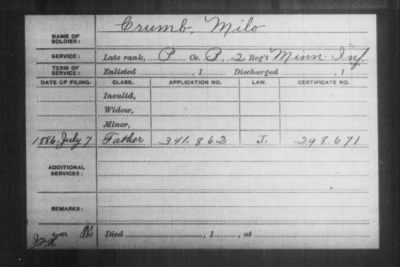 Crumb, Milo
NAME OF SOLDIER:
SERVICE: Late rank, P Co. P, 2 Reg't Minn. Inf.
TERM OF SERVICE: Enlisted , 1 Discharged , 1
DATE OF FILING. CLASS. APPLICATION NO. LAW. CERTIFICATE NO.
Invalid,
Widow,
Minor,
1886 July 7 Father 341.862 J. 298.671
ADDITIONAL SERVICES:
REMARKS:
Died , 1 , at